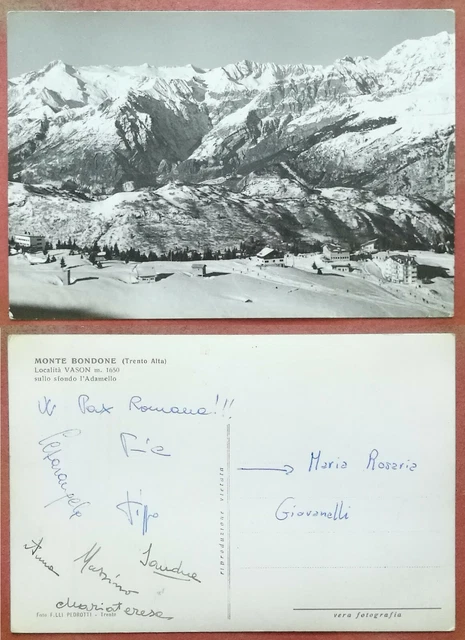 MONTE BONDONE (Trento Alta)
Località VASON m. 1650
sullo sfondo l'Adamello
Pax Romana!!!
Pippo
Anna
Massimo
Sandra
Mariateresa
Foto F.LLI PEDROTTI - Trento
riproduzione vietata
Maria Rosaria
Giovanelli
vera fotografia